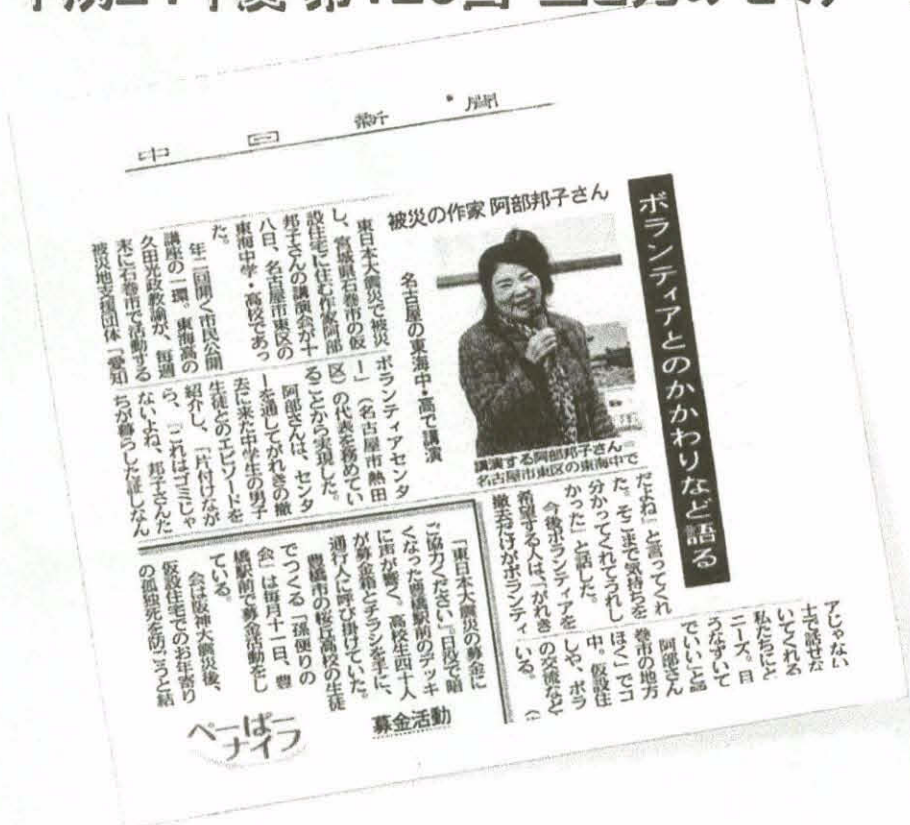 中日新聞
ボランティアとのかかわりなど語る
被災の作家 阿部邦子さん
名古屋の東海中・高で講演
講演する阿部邦子さん=
名古屋市東区の東海中で
東日本大震災で被災
し、宮城県石巻市の仮
設住宅に住む作家阿部
邦子さんの講演会が十
八日、名古屋市東区の
東海中学・高校であっ
た。
年二回開く市民公開
講座の一環。東海高の
久田光政教諭が、毎週
末に石巻市で活動する
被災地支援団体「愛知
ボランティアセンタ
ー」(名古屋市熱田
区)の代表を務めてい
ることから実現した。
阿部さんは、センタ
ーを通してがれきの撤
去に来た中学生の男子
生徒とのエピソードを
紹介し、「片付けなが
ら、『これはゴミじゃ
ないよね、邦子さんた
ちが暮らした証しなん
だよね』と言ってくれ
た。そこまで気持ちを
分かってくれてうれし
かった」と話した。
今後ボランティアを
希望する人は、「がれき
撤去だけがボランティ
アじゃない
士で話せな
いてくれる
私たちにと
ニーズ。目
うなずいて
でいい」と
阿部さん
巻市の地方
ほく」でコ
中。仮設住
しや、ボラ
の交流など
いる。
「東日本大震災の募金に
ご協力ください」。日没で暗
くなった豊橋駅前のデッキ
に声が響く。高校生四十人
が募金箱とチラシを手に、
通行人に呼び掛けていた。
豊橋市の桜丘高校の生徒
でつくる「孫便りの
会」は毎月十一日、豊
橋駅前で募金活動をし
ている。
会は阪神大震災後、
仮設住宅でのお年寄り
の孤独死を防ごうと結
募金活動
ぺーぱー
ナイフ